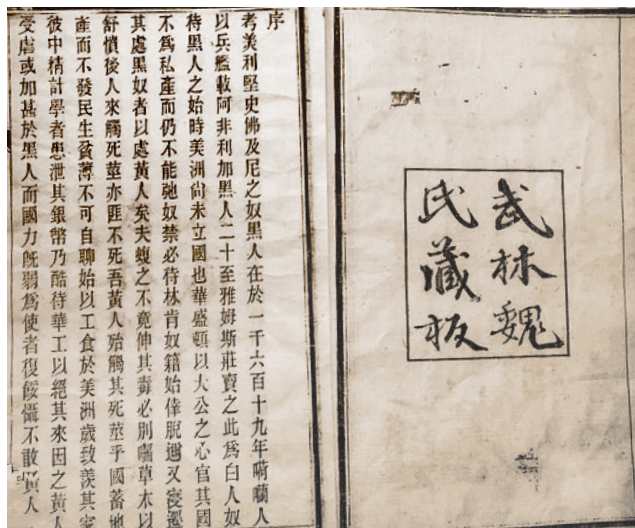 武林魏
氏藏板
序
考美利堅史佛及尼之奴黑人在於一千六百十九年嗬囒人
以兵艦載阿非利加黑人二十至雅姆斯莊賣之此爲白人奴
待黑人之始時美洲尙未立國也華盛頓以大公之心官其國
不爲私產而仍不能弛奴禁必待林肯奴籍始倖脫邇又寖遷
其處黑奴者以處黃人矣夫蝮之不竟伸其毒必別囓草木以
舒憤後人來觸死莖亦匪不死吾黃人殆觸其死莖乎國蓄地
產而不發民生貧薄不可自聊始以工食於美洲歲致羨其家
彼中精計學者患泄其銀幣乃酷待華工以絕其來因之黃人
受虐或加甚於黑人而國力旣弱爲使者復餒懾不敢人